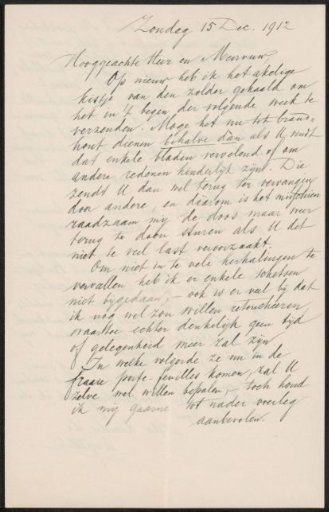 Zondag 15 Dec. 1912
Hooggeachte Heer en Mevrouw,
Op nieuw heb ik het akelige
kistje van den zolder gehaald om
het in 't begin der volgende week te
verzenden. Moge het nu tot brand-
hout dienen behalve dan als U vindt
dat enkele bladen vervelend of om
andere redenen hinderlijk zijn. Die
zendt U dan wel terug ter vervanging
door andere, en daarom is het misschien
raadzaam mij de doos maar weer
terug te doen sturen als U dat
niet te veel last veroorzaakt.
Om niet in te vele herhalingen te
vervallen heb ik er enkele schetsen
niet bijgedaan, – ook is er veel bij dat
ik nog wel zou willen retoucheeren
waartoe echter denkelijk geen tijd
of gelegenheid meer zal zijn
In welke volgorde ze nu in de
fraaie porte-feuilles komen, zal U
zelve wel willen bepalen, – toch houd
ik mij gaarne tot nader overleg
aanbevolen.